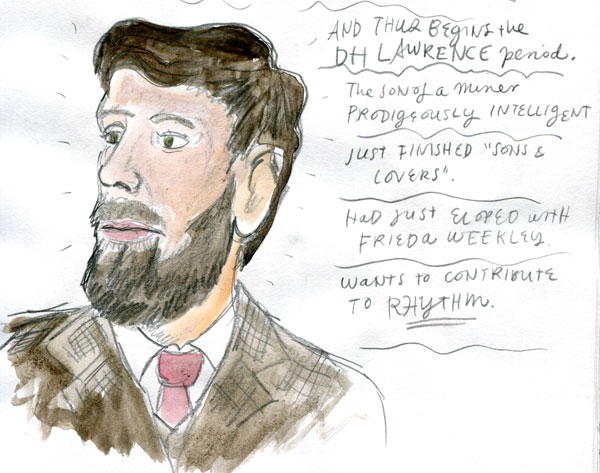 AND THUR BEGINS the
DH LAWRENCE period.
The SON of a miner
PRODIGEOUSLY INTELLIGENT
JUST FINISHED "SONS &
LOVERS".
HAD JUST ELOPED with
FRIEDA WEEKLEY.
WANTS TO CONTRIBUTE
TO RHYTHM.